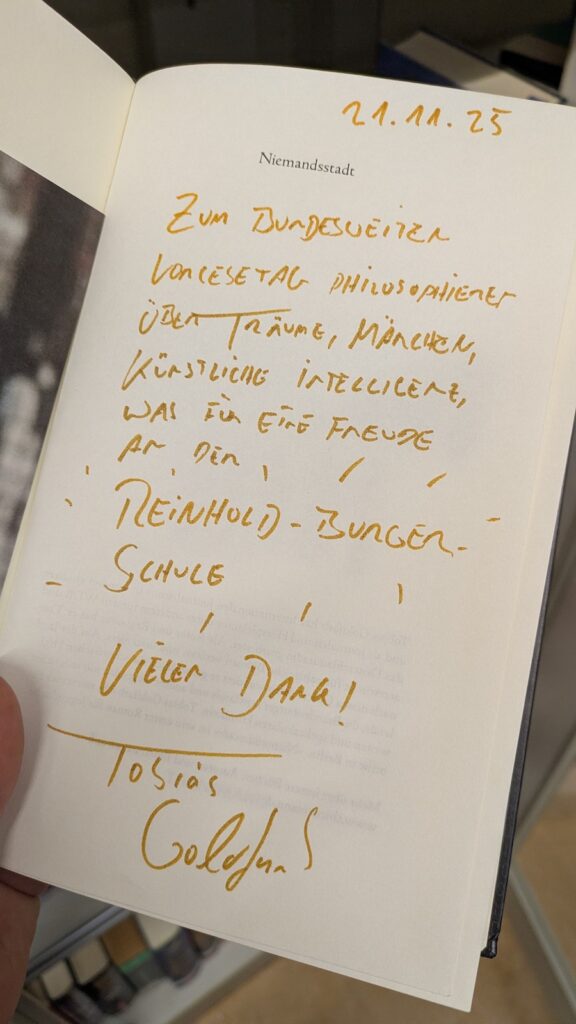 21.11.25
Niemandsstadt
ZUM BUNDESWEITEN
VORLESETAG PHILOSOPHIEREN
ÜBER TRÄUME, MÄRCHEN,
KÜNSTLICHE INTELLIGENZ,
WAS FÜR EINE FREUDE
AN DER
REINHOLD-BURGER-
SCHULE
VIELEN DANK!
Tobias
Goldfarb